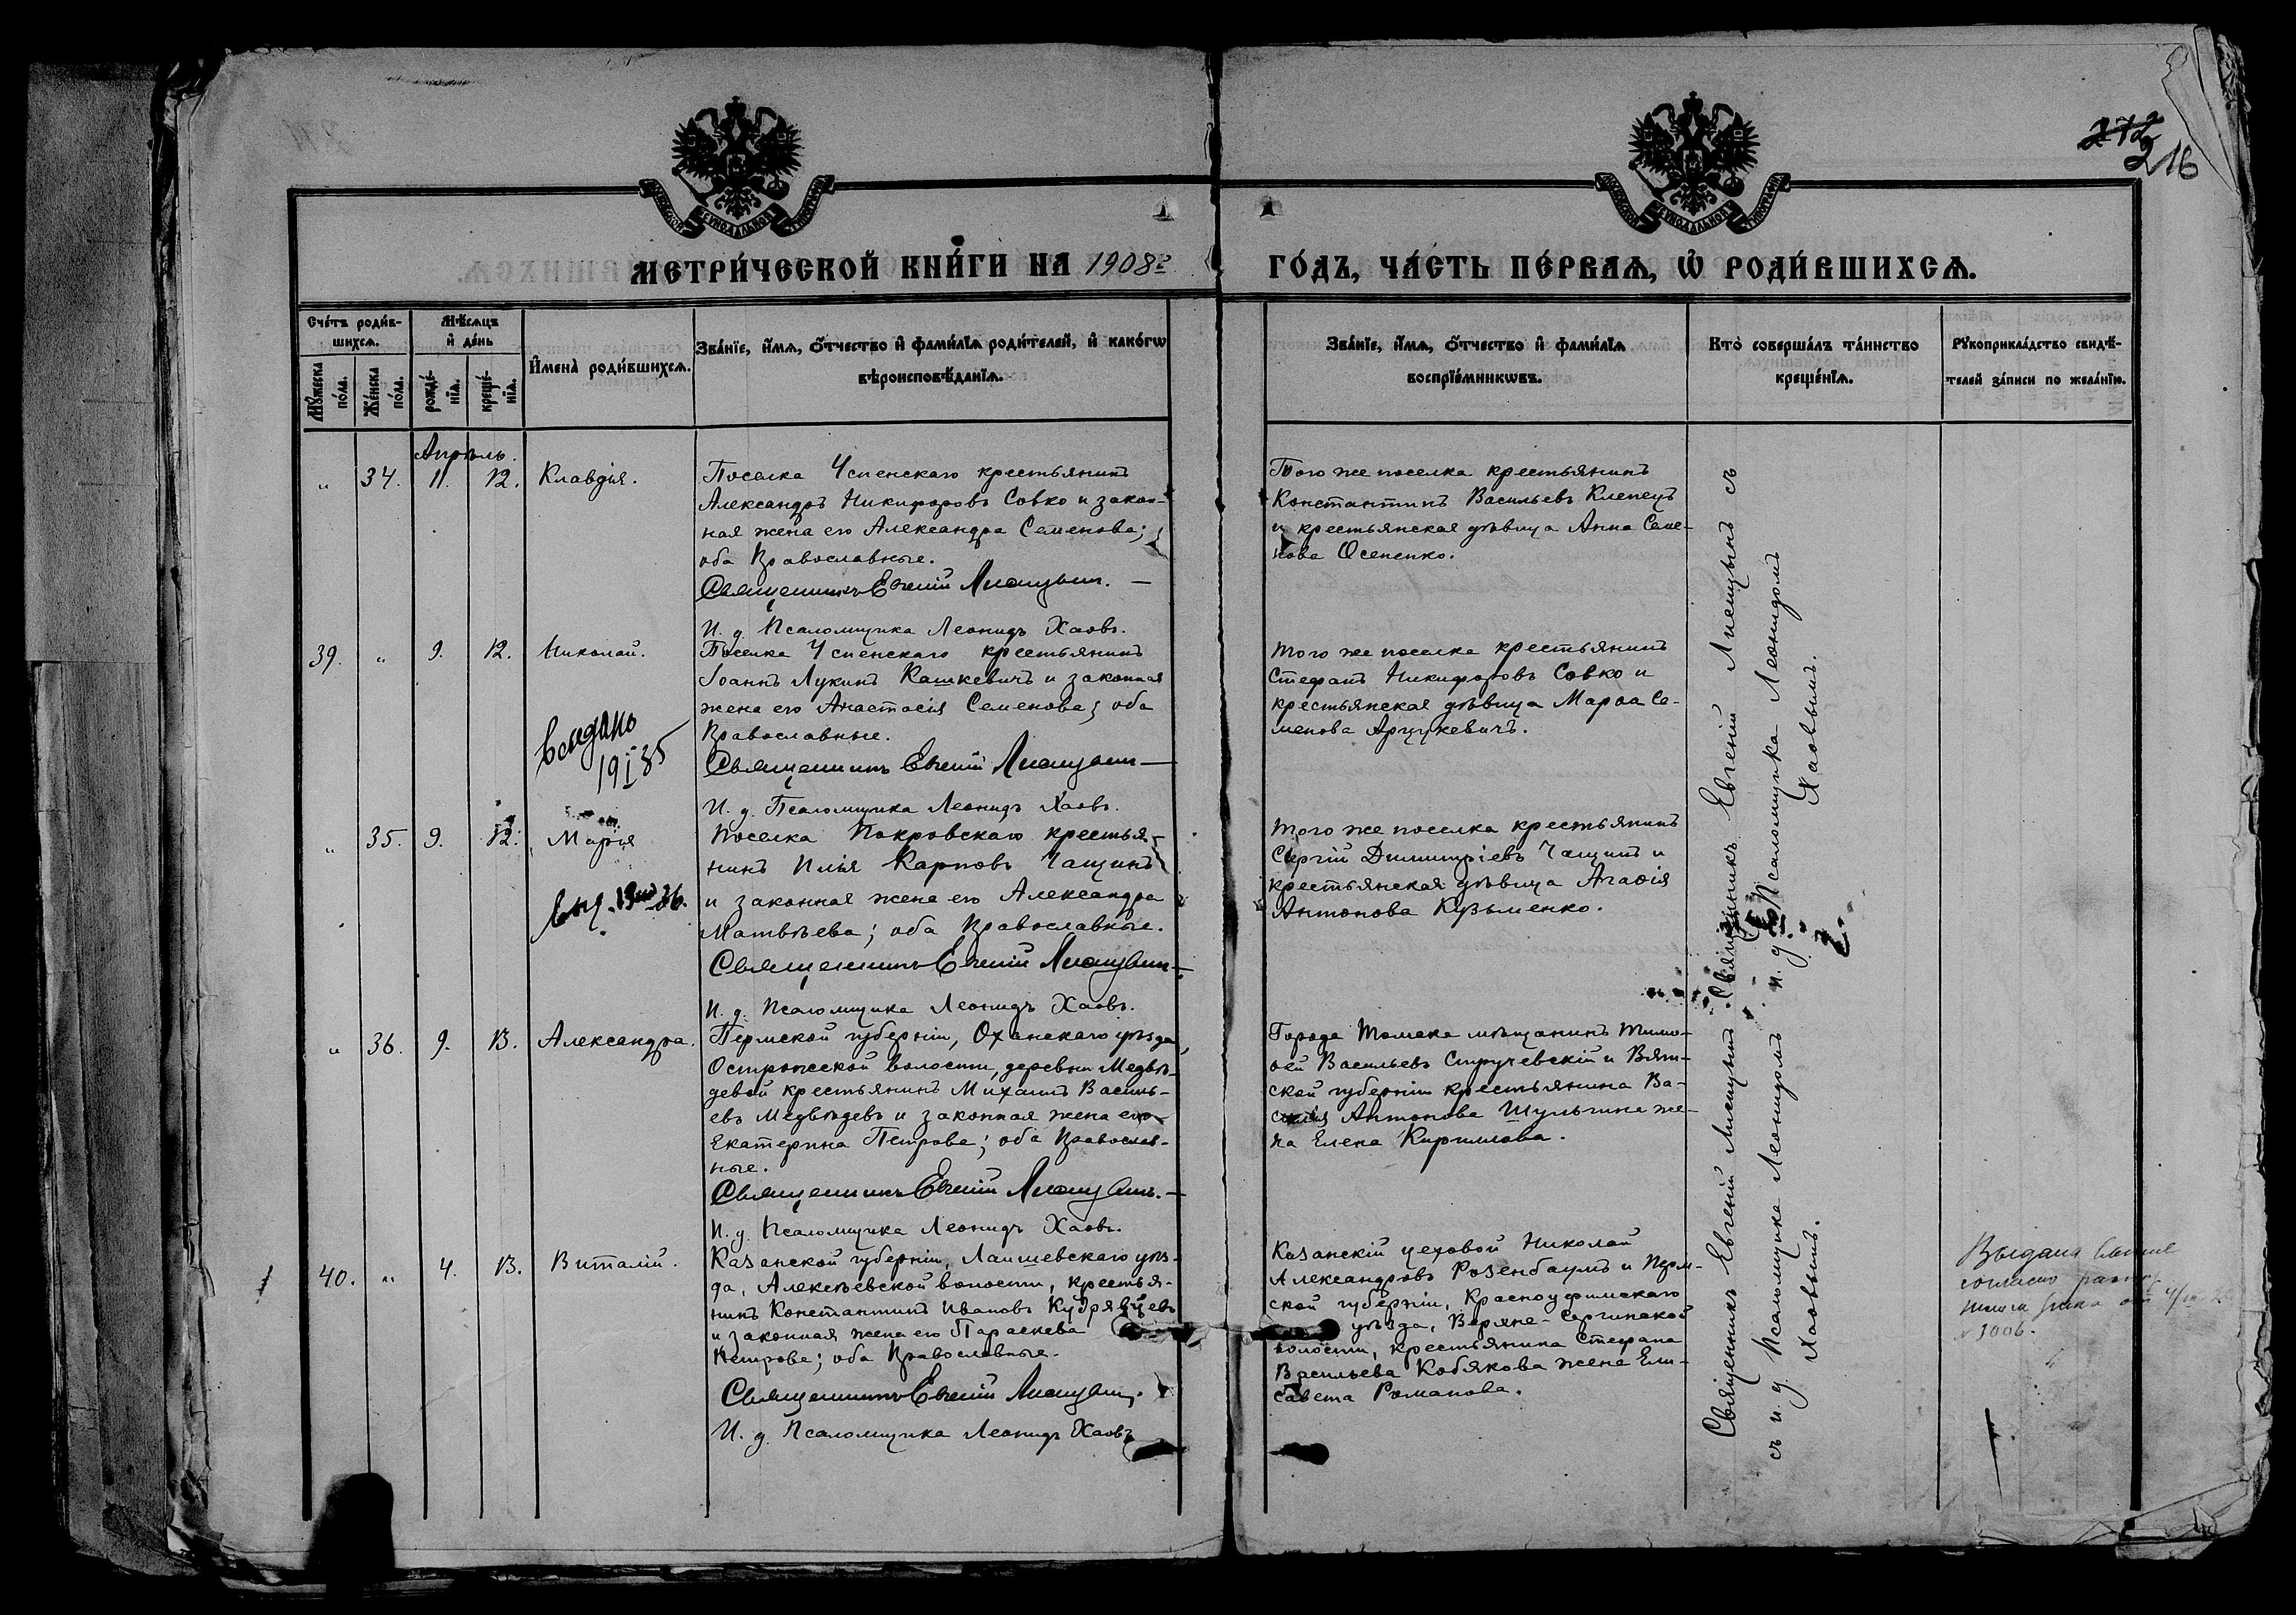 216
МЕТРИ́ЧЕСКОЙ КНИ́ГИ НА 1908 г
ГО́ДЪ, ЧА́СТЬ ПЕ́РВАѦ, Ѽ РОДИ́ВШИХСѦ.
Сче́тъ роди́в-
шихсѧ.
Мѣ́сѧцъ
и҆ де́нь
Мꙋ́жеска
по́ла.
Же́нска
по́ла.
рожде́-
нїѧ.
креще́-
нїѧ.
И҆мена̀ роди́вшихсѧ.
Зва́нїе, и҆́мѧ, ѻ҆́тчество и҆ фами́лїѧ роди́телей, и҆ како́гѡ
вѣроисповѣ́данїѧ.
Зва́нїе, и҆́мѧ, ѻ҆́тчество и҆ фами́лїѧ
воспрїе́мникѡвъ.
Кто̀ соверша́лъ та́инство
креще́нїѧ.
Рꙋкоприкла́дство свидѣ́-
телей за́писи по жела́нїю.
Апрѣль.
" 34. 11. 12. Клавдія.
Поселка Успенскаго крестьянинъ
Александръ Никифоровъ Совко и закон-
ная жена его Александра Семенова;
оба Православные.
Священникъ Евгеній Лисицынъ. —
И. д. Псаломщика Леонидъ Хаовъ.
Того же поселка крестьянинъ
Константинъ Васильевъ Клепецъ
и крестьянская дѣвица Анна Семе-
нова Осепенко.
39. " 9. 12. Николай.
Выдано
19 I 35
Поселка Успенскаго крестьянинъ
Іоаннъ Лукинъ Кашкевичъ и законная
жена его Анастасія Семенова; оба
Православные.
Священникъ Евгеній Лисицынъ —
И. д. Псаломщика Леонидъ Хаовъ.
Того же поселка крестьянинъ
Стефанъ Никифоровъ Совко и
крестьянская дѣвица Марѳа Се-
менова Арцукевичъ.
" 35. 9. 12. Марія
Выд. 36.
Поселка Покровскаго крестья-
нинъ Илія Карповъ Чащинъ
и законная жена его Александра
Матвѣева; оба Православные.
Священникъ Евгеній Лисицынъ —
И. д. Псаломщика Леонидъ Хаовъ.
Того же поселка крестьянинъ
Сергій Димитріевъ Чащинъ и
крестьянская дѣвица Агаѳія
Антонова Кузьменко.
" 36. 9. 13. Александра.
Пермской губерніи, Оханскаго уѣзда,
Острожской волости, деревни Медвѣ-
девой крестьянинъ Михаилъ Василь-
евъ Медвѣдевъ и законная жена его
Екатерина Петрова; оба Православ-
ные.
Священникъ Евгеній Лисицынъ. —
И. д. Псаломщика Леонидъ Хаовъ.
Города Томска мѣщанинъ Тимо-
ѳей Васильевъ Стручевскій и Вят-
ской губерніи крестьянина Ва-
силія Антонова Шульгина же-
на Елена Кириллова.
40. " 4. 13. Виталій.
Казанской губерніи, Лаишевскаго уѣз-
да, Алексѣевской волости, крестья-
нинъ Константинъ Ивановъ Кудрявцевъ
и законная жена его Параскева
Петрова; оба Православные.
Священникъ Евгеній Лисицынъ.
И. д. Псаломщика Леонидъ Хаовъ
Казанскій цеховой Николай
Александровъ Розенбаумъ и Перм-
ской губерніи, Красноуфимскаго
уѣзда, Верхне-Сергинской
волости, крестьянина Стефана
Васильева Кобякова жена Ели-
савета Романова.
Священникъ Евгеній Лисицынъ съ
и. д. Псаломщика Леонидомъ
Хаовымъ.
Священникъ Евгеній Лисицынъ
съ и. д. Псаломщика Леонидомъ
Хаовымъ.
Выдана
согласно
1006.